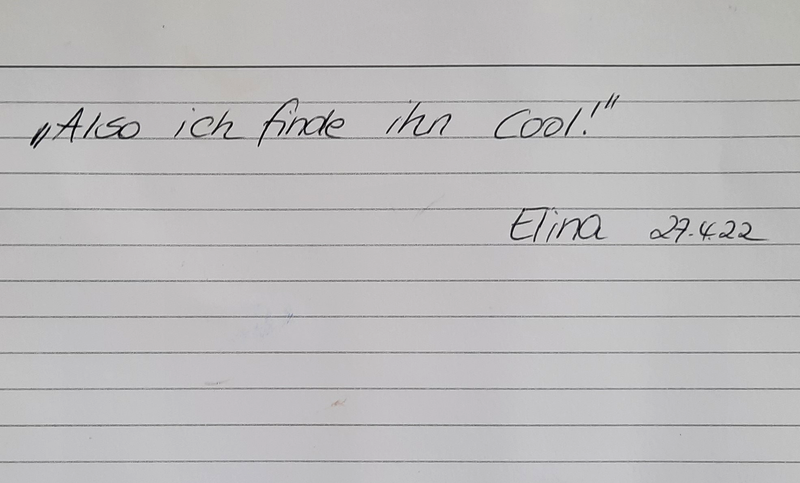 „Also ich finde ihn cool!"
Elina 27.4.22